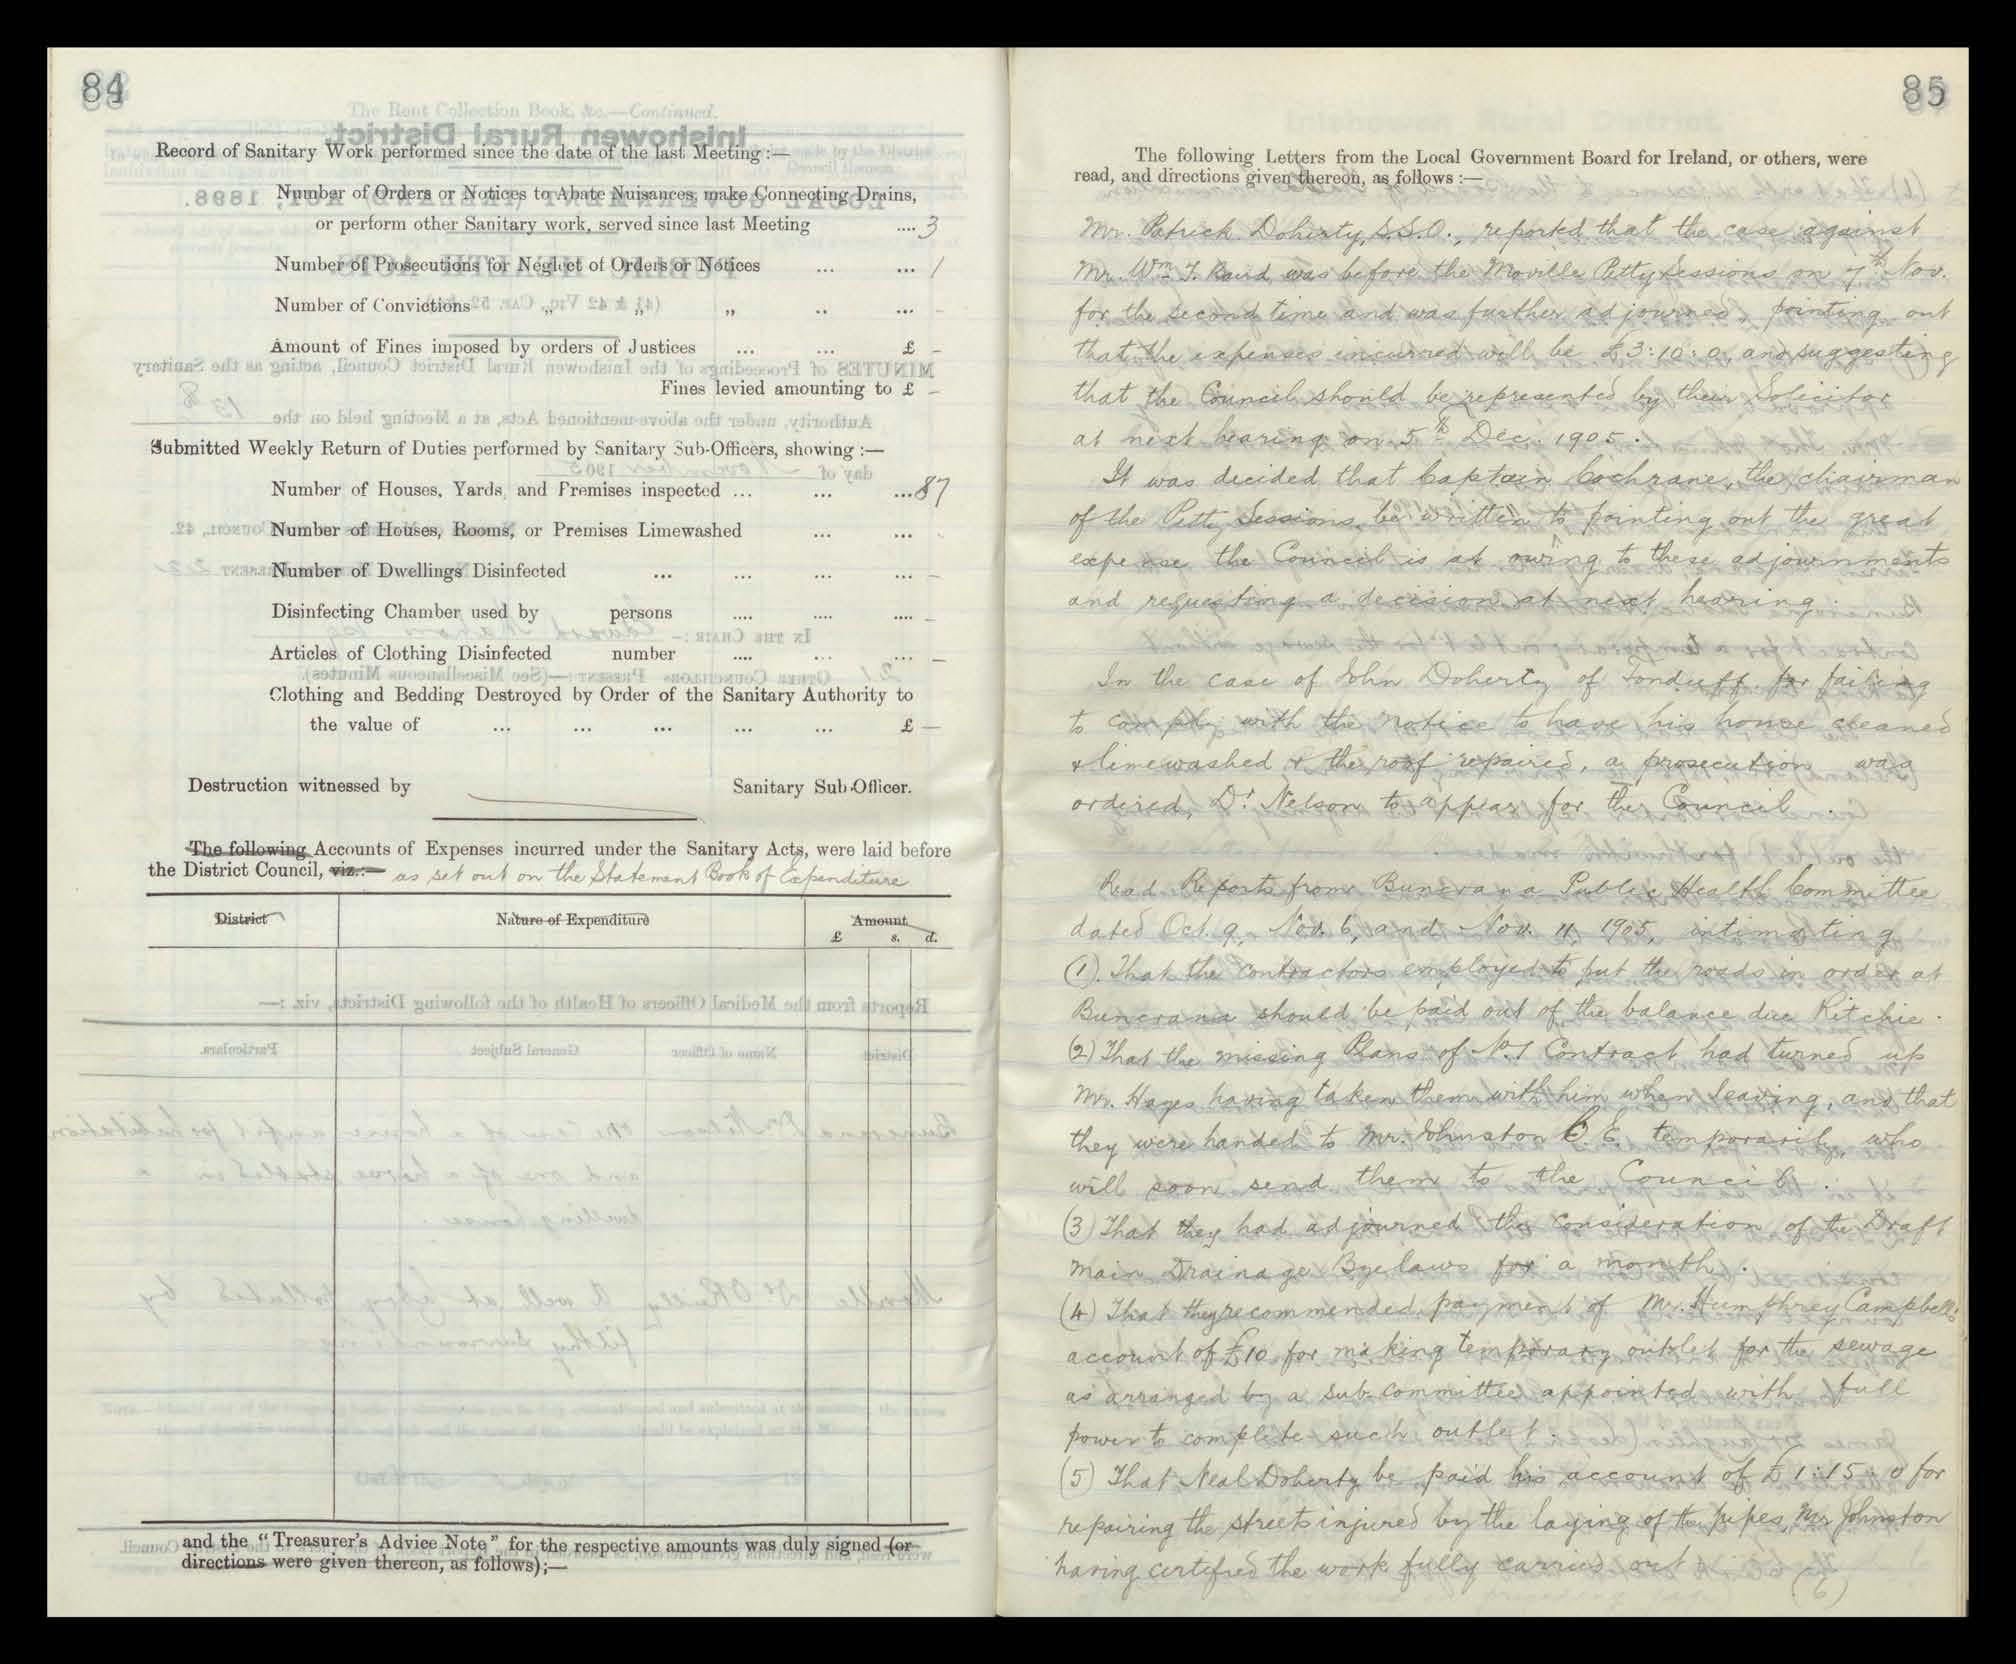 84
Record of Sanitary Work performed since the date of the last Meeting :—
Number of Orders or Notices to Abate Nuisances, make Connecting Drains,
or perform other Sanitary work, served since last Meeting .... 3
Number of Prosecutions for Neglect of Orders or Notices ... ... 1
Number of Convictions „ „ „ .. ... -
Amount of Fines imposed by orders of Justices ... ... £ -
Fines levied amounting to £ -
Submitted Weekly Return of Duties performed by Sanitary Sub-Officers, showing :—
Number of Houses, Yards, and Premises inspected ... ... ... 87
Number of Houses, Rooms, or Premises Limewashed ... ...
Number of Dwellings Disinfected ... ... ... ... -
Disinfecting Chamber used by persons .... .... .... -
Articles of Clothing Disinfected number .... ... ... -
Clothing and Bedding Destroyed by Order of the Sanitary Authority to
the value of ... ... ... ... ... £ —
Destruction witnessed by Sanitary Sub-Officer.
The following Accounts of Expenses incurred under the Sanitary Acts, were laid before
the District Council, viz.:— as set out on the Statement Book of Expenditure
District Nature of Expenditure Amount
£ s. d.
and the “Treasurer's Advice Note” for the respective amounts was duly signed (or
directions were given thereon, as follows);—
85
The following Letters from the Local Government Board for Ireland, or others, were
read, and directions given thereon, as follows :—
Mr. Patrick Doherty, S.S.O., reported that the case against
Mr. Wm. T. was before the Moville Petty Sessions on 7th Nov.
for the second time and was further adjourned, pointing out
that the expenses incurred will be £3:10:0, and suggesting
that the Council should be represented by their Solicitor
at next hearing on 5th Dec. 1905.
It was decided that Captain Cochrane, the chairman
of the Petty Sessions, be written to pointing out the great
expense the Council is at owing to these adjournments
and requesting a decision at next hearing.
In the case of John Doherty of Tonduff for failing
to comply with the notice to have his house cleaned
& limewashed & the roof repaired, a prosecution was
ordered, Dr Nelson to appear for the Council.
Read Reports from Buncrana Public Health Committee
dated Oct. 9, Nov. 6, and Nov. 11, 1905, intimating
(1). That the contractors employed to put the roads in order at
Buncrana should be paid out of the balance due Ritchie.
(2) That the missing Plans of No. 1 Contract had turned up
Mr. Hayes having taken them with him when leaving, and that
they were handed to Mr. Johnston C.E. temporarily, who
will soon send them to the Council.
(3) That they had adjourned the consideration of the Draft
Main Drainage Byelaws for a month.
(4) That they recommended payment of Mr. Humphrey Campbell's
account of £10 for making temporary outlet for the sewage
as arranged by a sub-committee appointed with full
power to complete such outlet.
(5) That Neal Doherty be paid his account of £1:15:0 for
repairing the streets injured by the laying of the pipes, Mr Johnston
having certified the work fully carried out.
(6)